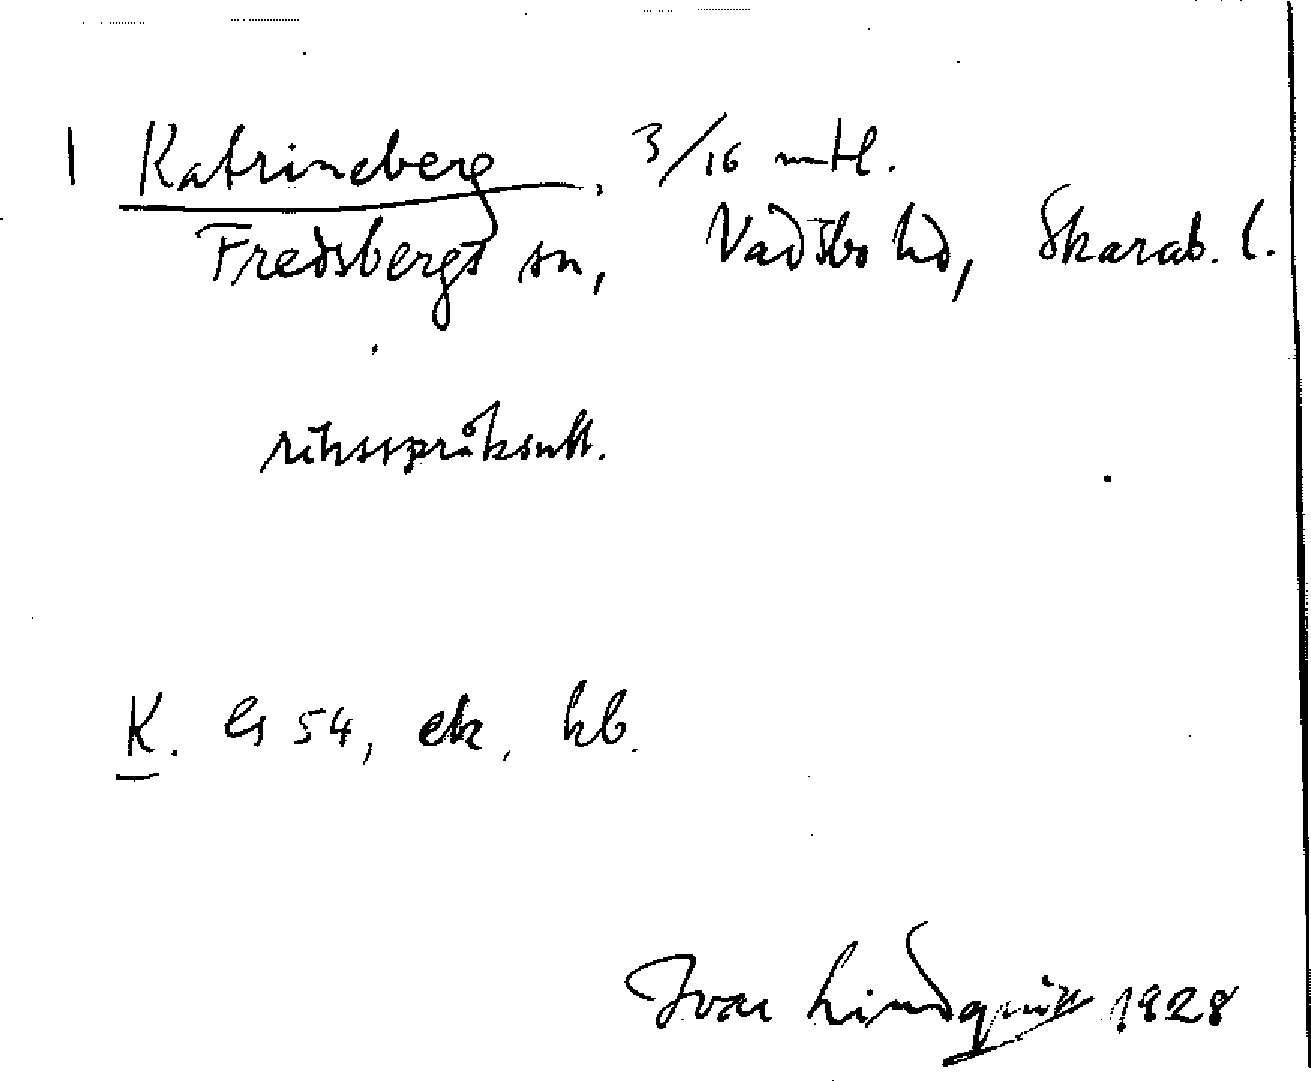 1 Katrineberg, 3/16 mtl.
Fredsbergs sn, Vadsbo hd, Skarab. l.
riksspråksutt.
K. Gs 54, ek, kb.
Ivar Lindquist 1928